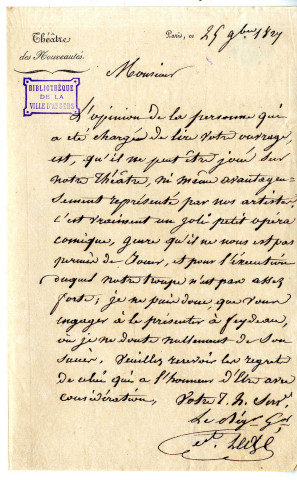 Théâtre
des Nouveautés.
Paris, ce 25 9bre 1827
Monsieur
BIBLIOTHÈQUE
DE LA
VILLE D'ANGERS
L'opinion de la personne qui
a été chargée de lire votre ouvrage,
est, qu'il ne peut être joué sur
notre théâtre, ni même avantageu-
sement représenté par nos artistes,
c'est vraiment un joli petit opéra
comique, genre qu'il ne nous est pas
permis de jouer, et pour l'exécution
duquel notre troupe n'est pas assez
forte; je ne puis donc, que vous
engager à le présenter à feydeau,
où je ne doute nullement de son
succès. Veuillez recevoir les regrets
de celui qui a l'honneur d'être avec
considération, Votre T. h. Serv.
Le Régr Gal